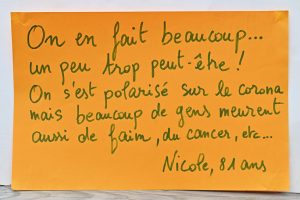 On en fait beaucoup...
un peu trop peut-être !
On s'est polarisé sur le corona
mais beaucoup de gens meurent
aussi de faim, du cancer, etc...
Nicole, 81 ans